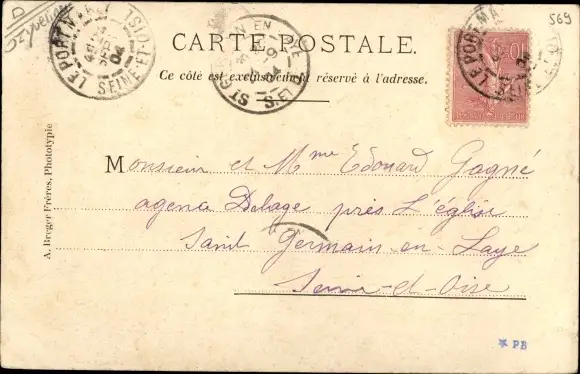 569
CARTE POSTALE.
Ce côté est exclusivement réservé à l'adresse.
LE PORT MARLY
SEINE-ET-OISE
04
ST GERMAIN EN LAYE
S. ET O.
LE PORT MA
10
A. Breger Frères, Phototypie
Monsieur et Mme Edouard Gagné
agence Delage près L'église
Saint Germain-en-Laye
Seine-et-Oise
* PB